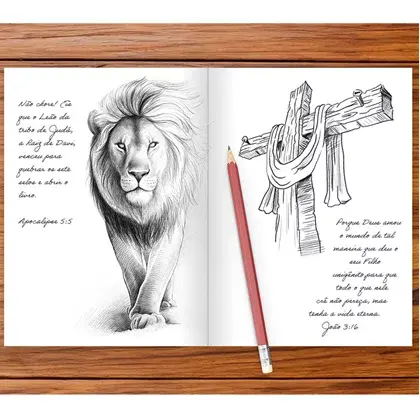 Não chore! Eis
que o Leão da
tribo de Judá,
a Raiz de Davi,
venceu para
quebrar os sete
selos e abrir o
livro.
Apocalipse 5:5
Porque Deus amou
o mundo de tal
maneira que deu o
seu Filho
unigênito para que
todo o que nele
crê não pereça, mas
tenha a vida eterna.
João 3:16